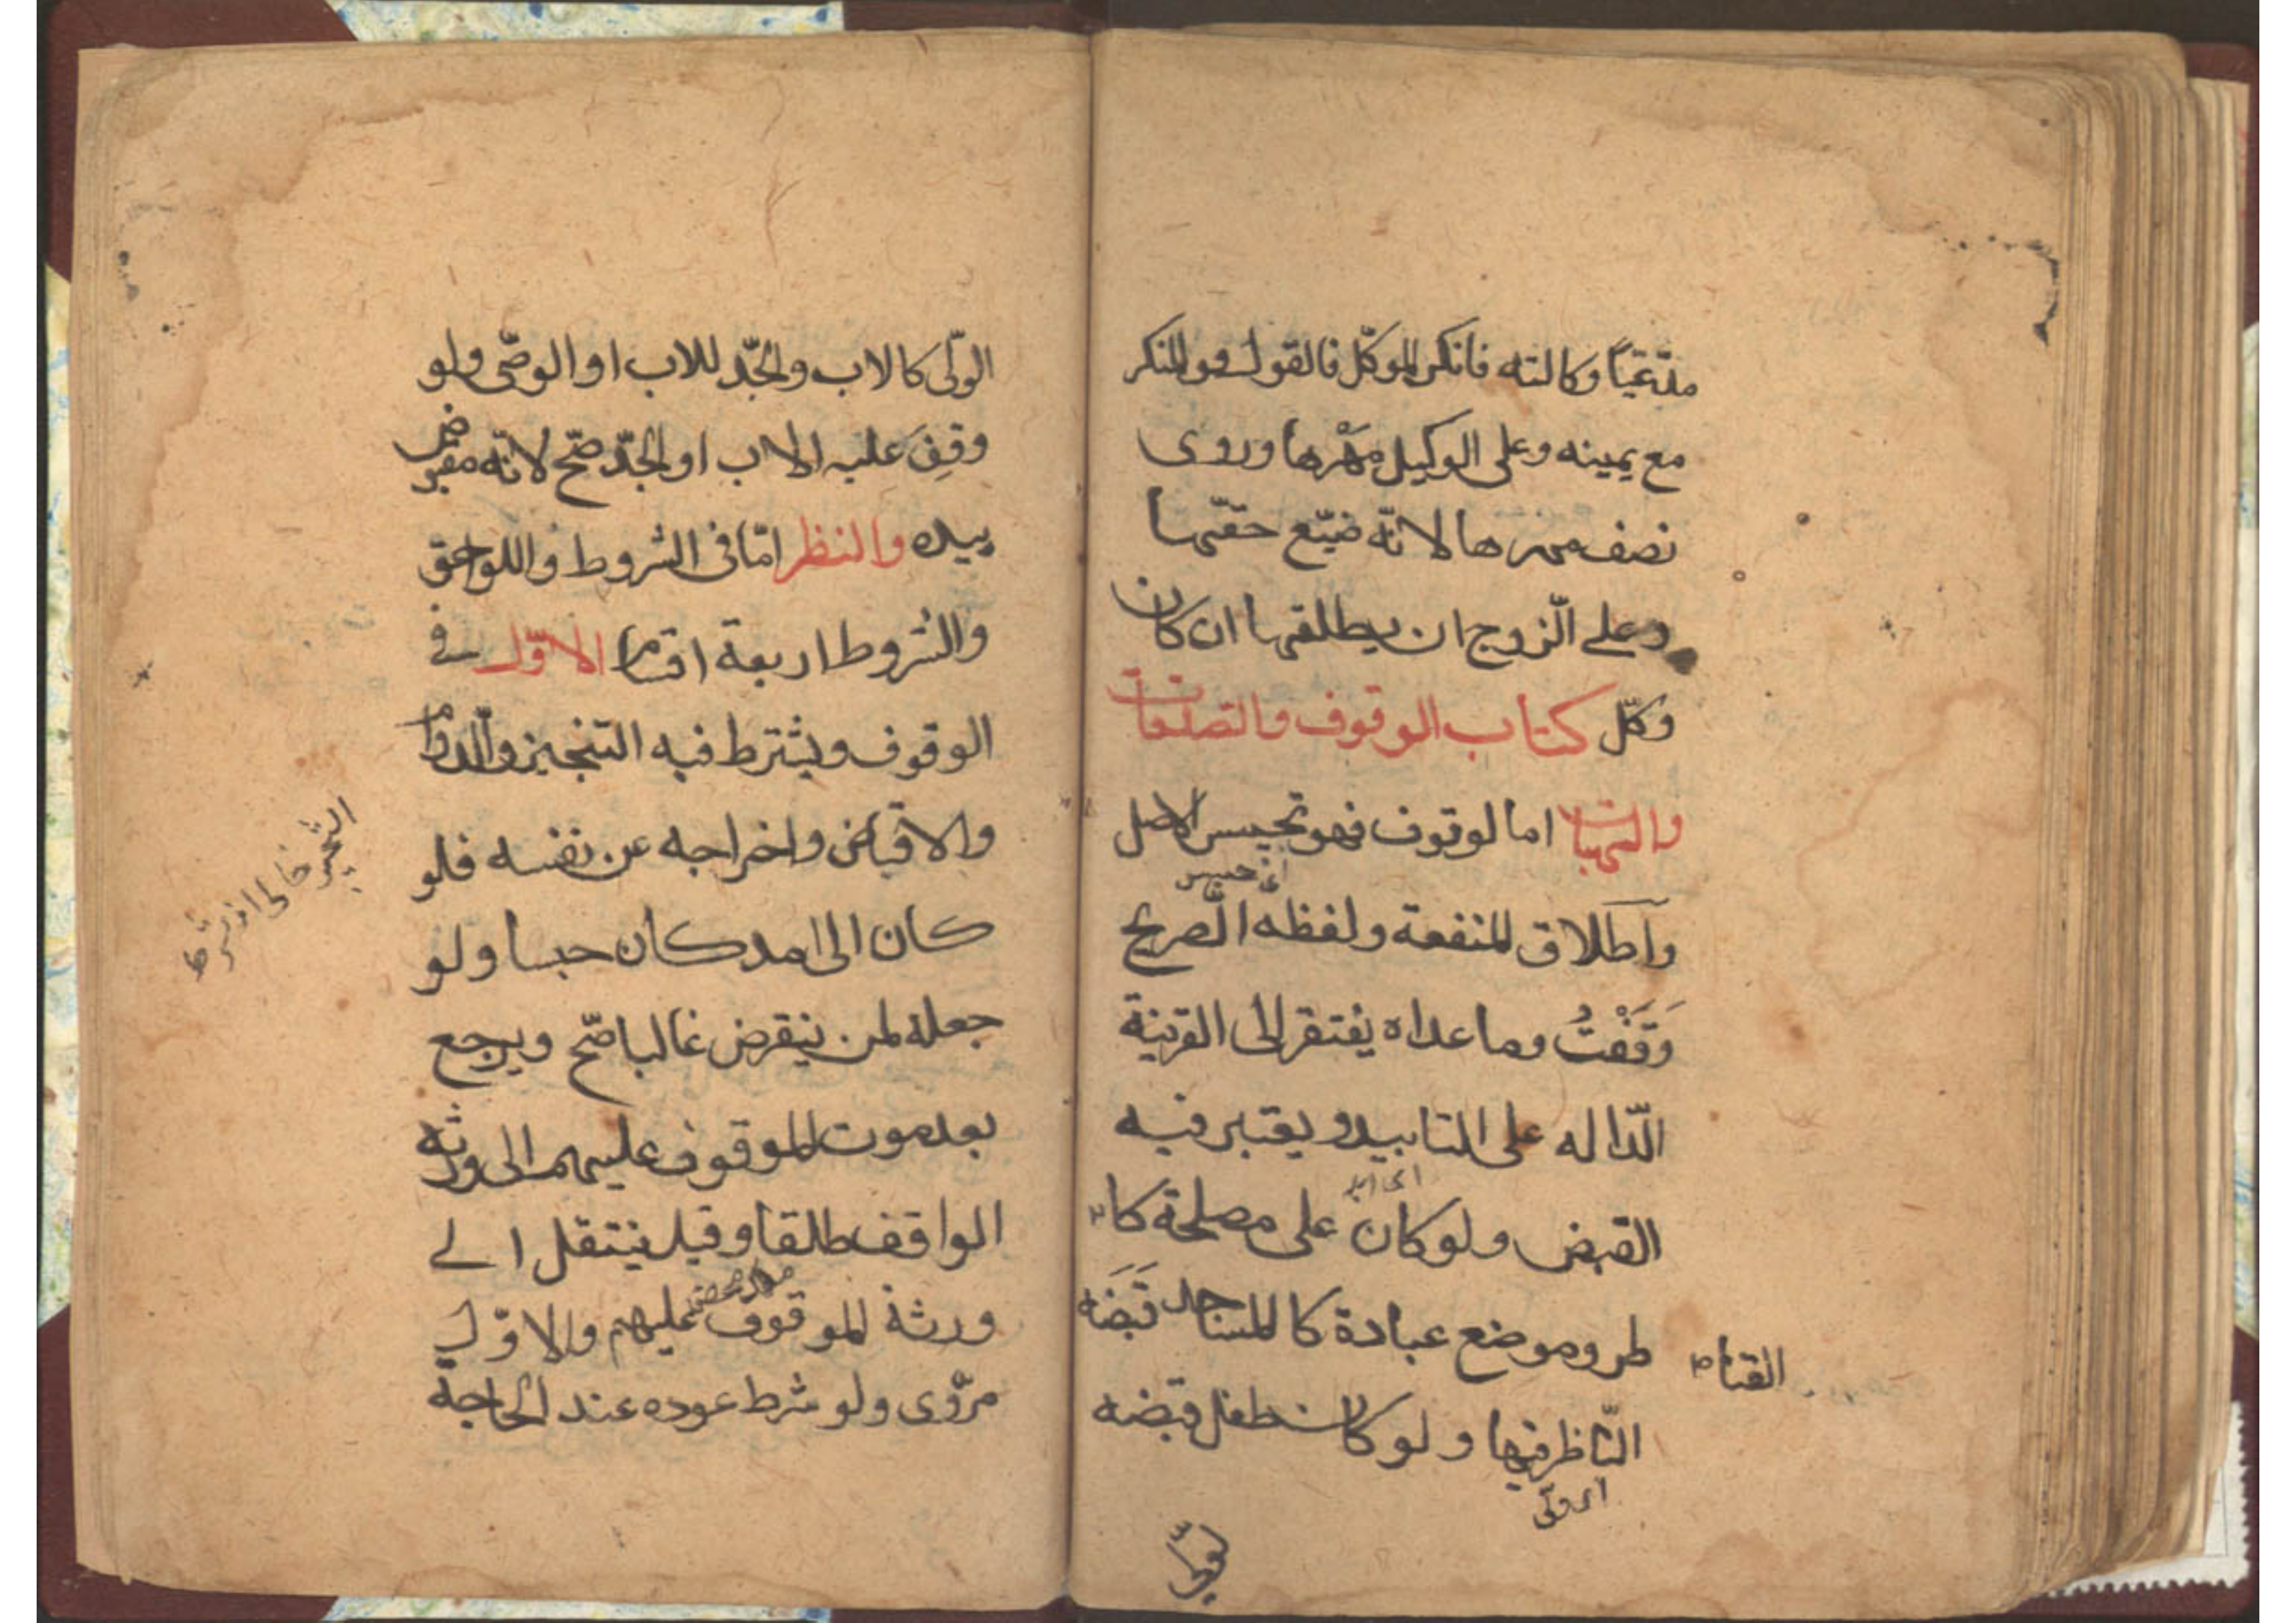 مدّعيًا وكالته فانكر الموكّل فالقول قول المنكر
مع يمينه وعلى الوكيل مَهْرها وروى
نصف مهرها لانّه ضيّع حقّها
وعلى الزوج ان يطلقها ان كان
وكّل كتاب الوقوف والتصدقات
والهبات اما لوقوف فهو تحبيس الاصل
اى حبس
واطلاق المنفعة ولفظه الصريح
وَقَفْتُ وما عداه يفتقر الى القرينة
الدّاله على التابيد ويعتبر فيه
القبض ولو كان على مصلحة كا
القناط
طر وموضع عبادة كالمساجد قَبَضَه
النّاظر فيها ولو كان طفل قبضه
اى ولى
الولّى كالاب والجّد للاب او الوصّى ولو
وقِفَ عليه الاب او الجّد صّح لانّه مقبوض
بيده والنظر امّا فى الشروط واللواحق
والشروط اربعة اقسام الاوّل فى
الوقوف ويشترط فيه التنجيز والدّوام
والاقباض واخراجه عن نفسه فلو
كان الى امد كان حبسا ولو
جعله لمن ينقرض غالبا صّح ويرجع
بعد موت الموقوف عليهم الى ورثه
الواقف طلقا وقيل ينتقل الى
ورثة الموقوف عليهم والاوّل
مروّى ولو شرط عوده عند الحاجة